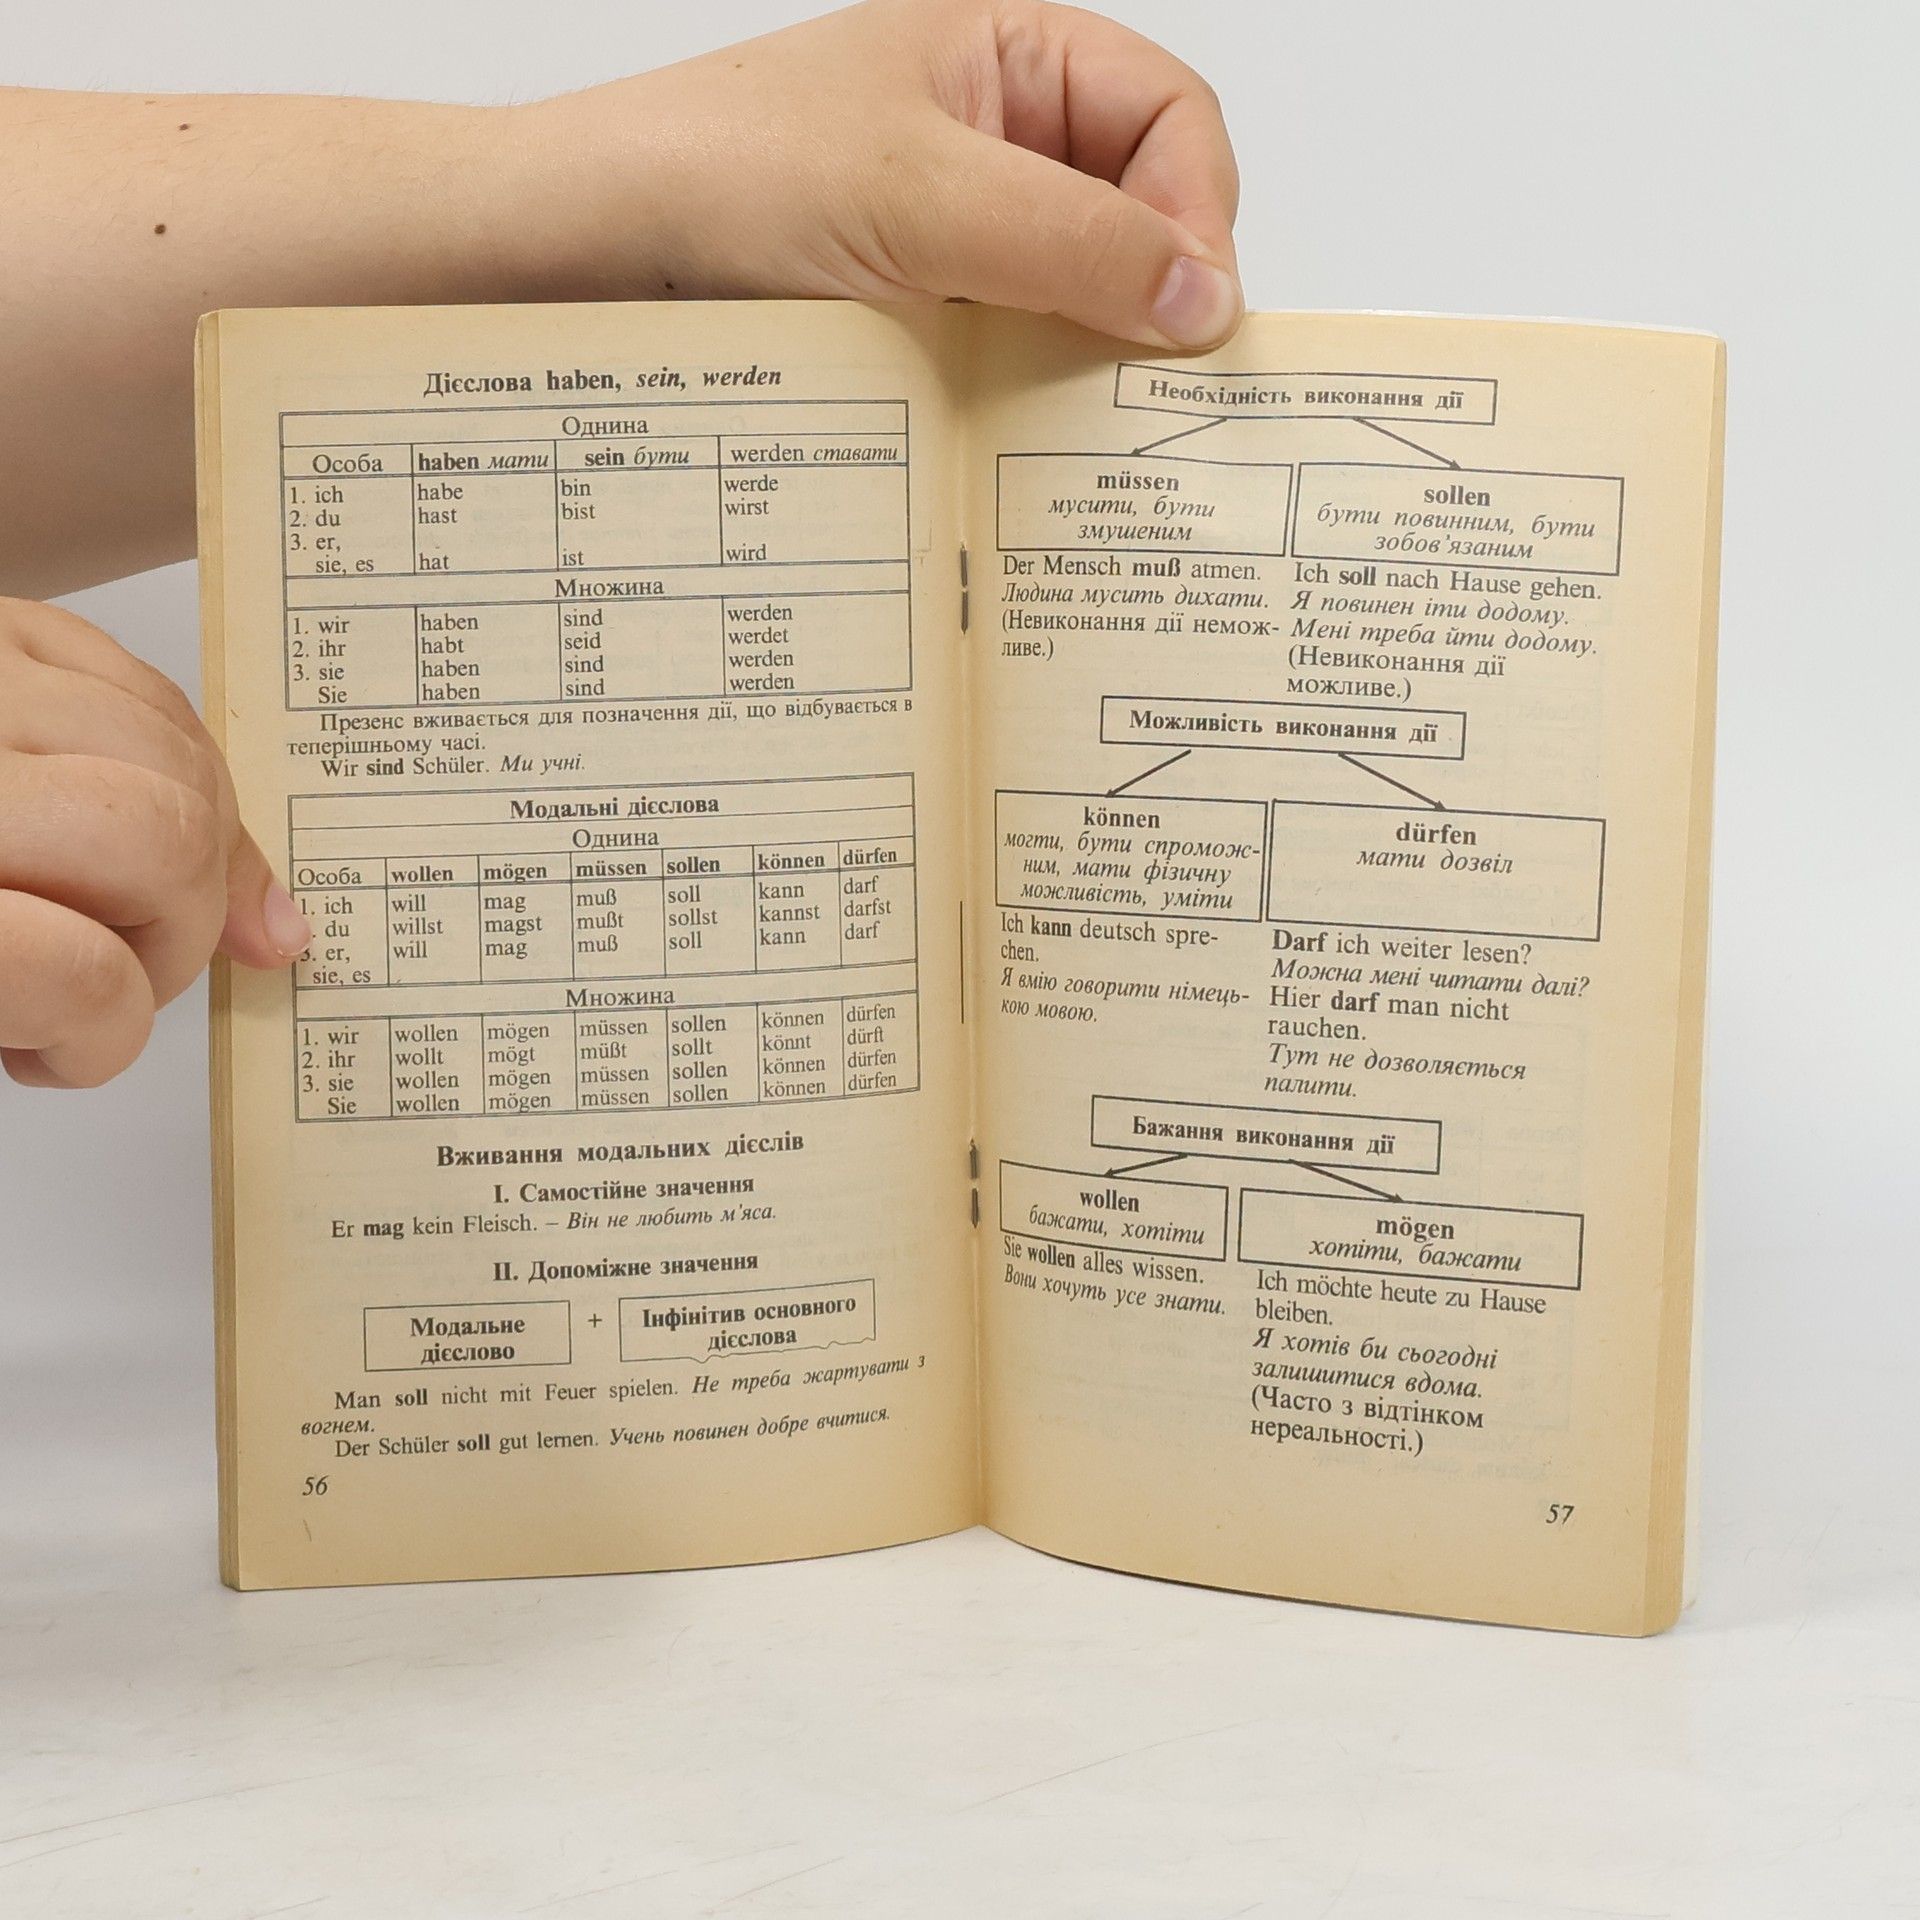 Дієслова haben, sein, werden
Однина
Особа haben мати sein бути werden ставати
1. ich habe bin werde
2. du hast bist wirst
3. er,
sie, es hat ist wird
Множина
1. wir haben sind werden
2. ihr habt seid werdet
3. sie haben sind werden
Sie haben sind werden
Презенс вживається для позначення дії, що відбувається в
теперішньому часі.
Wir sind Schüler. Ми учні.
Модальні дієслова
Однина
Особа wollen mögen müssen sollen können dürfen
1. ich will mag muß soll kann darf
. du willst magst mußt sollst kannst darfst
3. er, will mag muß soll kann darf
sie, es
Множина
1. wir wollen mögen müssen sollen können dürfen
2. ihr wollt mögt müßt sollt könnt dürft
3. sie wollen mögen müssen sollen können dürfen
Sie wollen mögen müssen sollen können dürfen
Вживання модальних дієслів
І. Самостійне значення
Er mag kein Fleisch. – Він не любить м'яса.
ІІ. Допоміжне значення
Модальне
дієслово
+
Інфінітив основного
дієслова
Man soll nicht mit Feuer spielen. Не треба жартувати з
вогнем.
Der Schüler soll gut lernen. Учень повинен добре вчитися.
56
Необхідність виконання дії
müssen
мусити, бути
змушеним
Der Mensch muß atmen.
Людина мусить дихати.
(Невиконання дії немож-
ливе.)
sollen
бути повинним, бути
зобов'язаним
Ich soll nach Hause gehen.
Я повинен іти додому.
Мені треба йти додому.
(Невиконання дії
можливе.)
Можливість виконання дії
können
могти, бути спромож-
ним, мати фізичну
можливість, уміти
Ich kann deutsch spre-
chen.
Я вмію говорити німець-
кою мовою.
dürfen
мати дозвіл
Darf ich weiter lesen?
Можна мені читати далі?
Hier darf man nicht
rauchen.
Тут не дозволяється
палити.
Бажання виконання дії
wollen
бажати, хотіти
Sie wollen alles wissen.
Вони хочуть усе знати.
mögen
хотіти, бажати
Ich möchte heute zu Hause
bleiben.
Я хотів би сьогодні
залишитися вдома.
(Часто з відтінком
нереальності.)
57